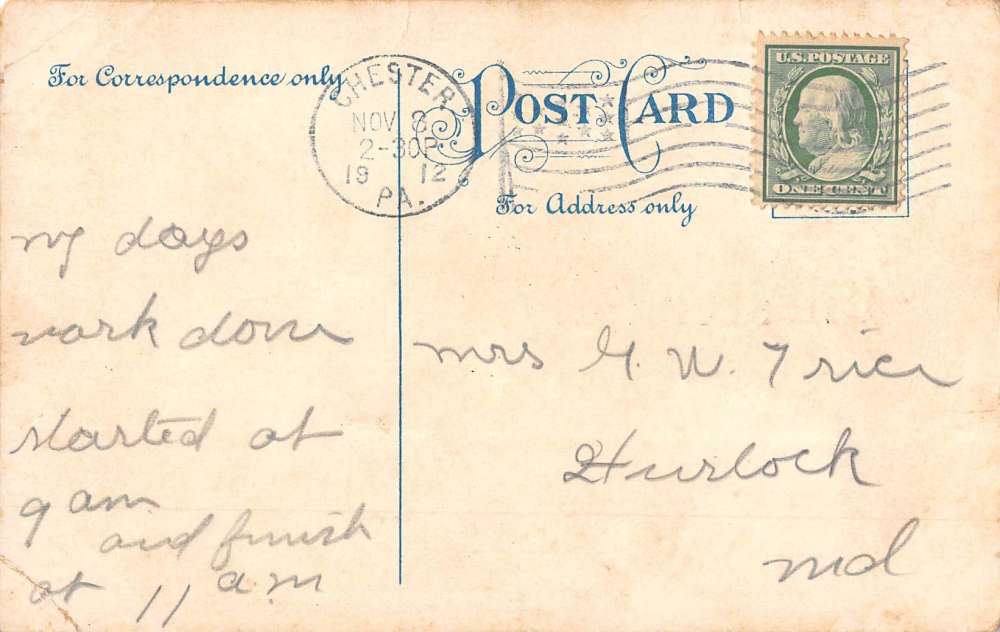 For Correspondence only
CHESTER
NOV 8
2-30P
1912
PA.
POST CARD
For Address only
U.S. POSTAGE
ONE CENT
my days
work done
started at
9 am
and finish
at 11 am
mrs G. W. Trice
Hurlock
md